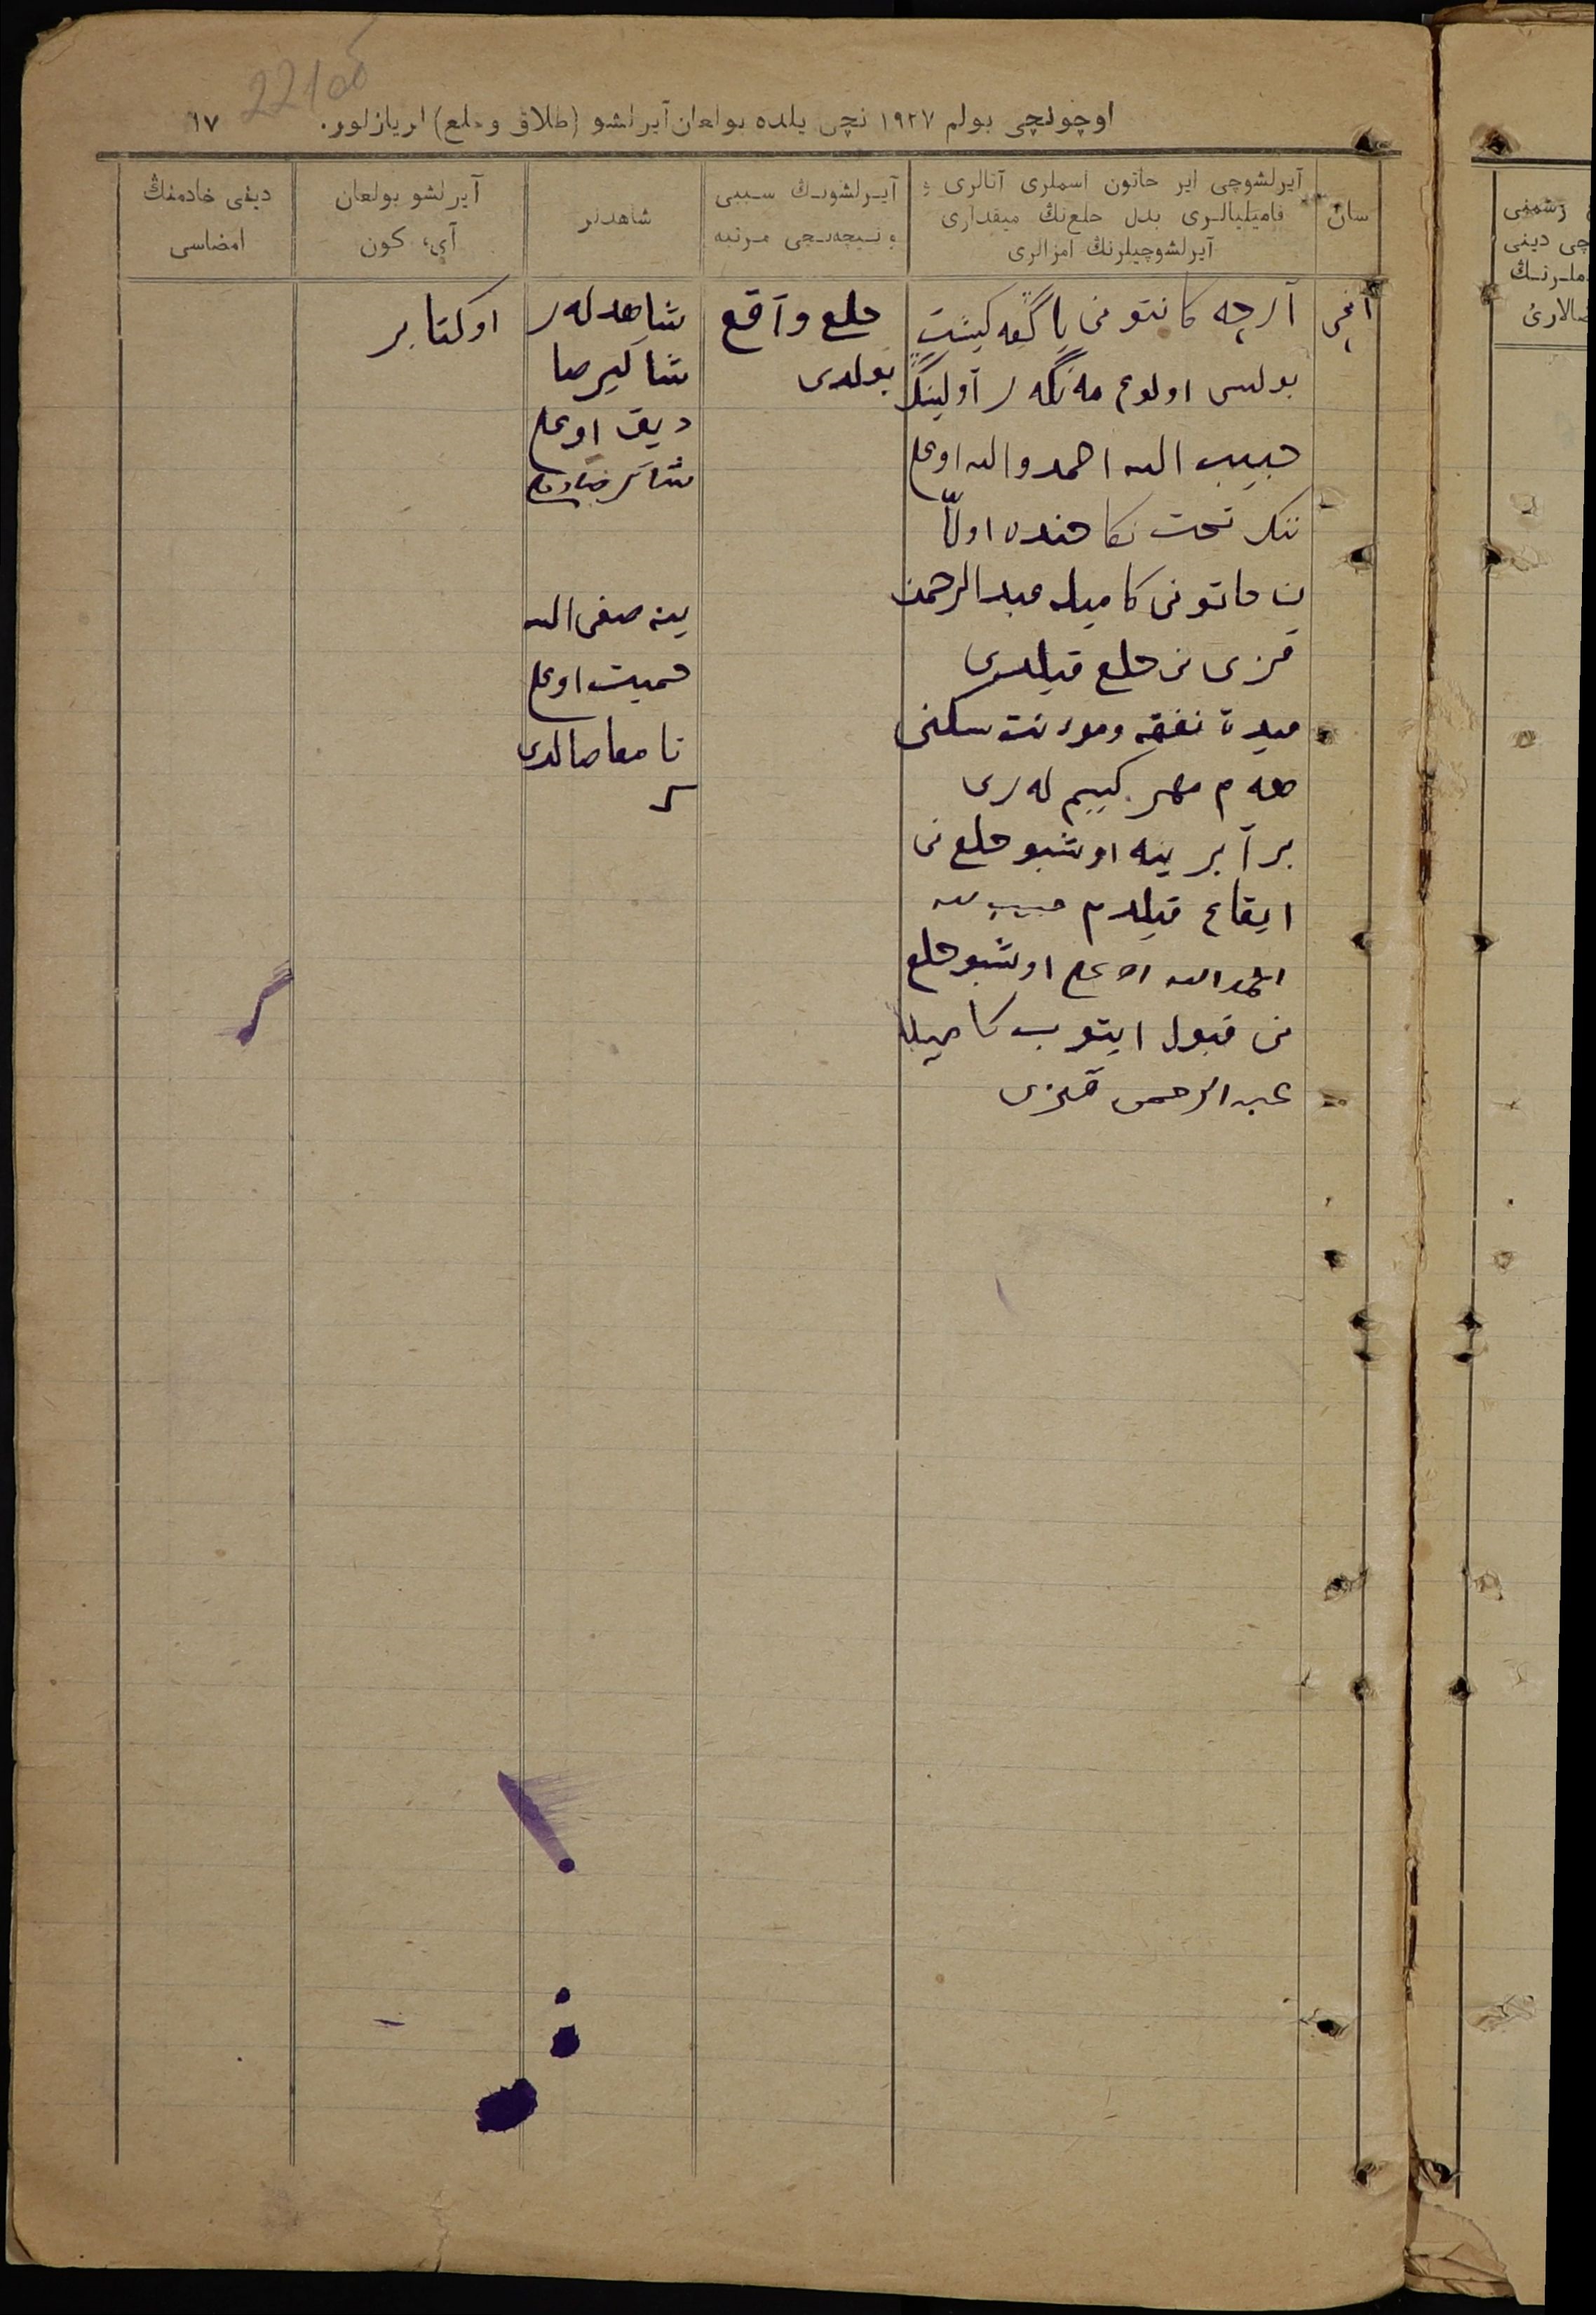 22 об
اوچونچی بولم ۱۹۲۷ نچی یلده بولعان آیرلشو (طلاق و حلع) لر یازلور. ۱۷
سان
آیرلشوچی ایر حاتون اسملری آتالری و
فامیلیالری بدل حلع‌نڭ میقداری
آیرلشوچیلرنڭ امزالری
آیرلشونڭ سببی
و نیچه‌نچی مرتبه
شاهدلر
آیرلشو بولعان
آی، کون
دینی خادمنڭ
امضاسی
آرچه کانتونی یاڭعه کینیت
بولسی اولوع مه‌نگه‌ر آولینڭ
حبیب الله احمد والله اوعلی
ننڭ تحت نکاحنده اولا
ن حاتونی کامیله عبدالرحمن
قزی نی حلع قیلدی
میدة نفقه و موءنت سکنی
هه‌م مهر کییم له‌ری
برآبرینه اوشبو حلع نی
ایقاع قیلدم حبیب الله
احمدالله اوعلی اوشبو حلع
نی قبول ایتوب کامیله
عبدالرحمن قزی
حلع وآقع
بولدی
شاهدله‌ر
شاکیر صا
دیق اوعلی
شاکر صادق
ینه صفی الله
حمیت اوعلی
اوکتابر